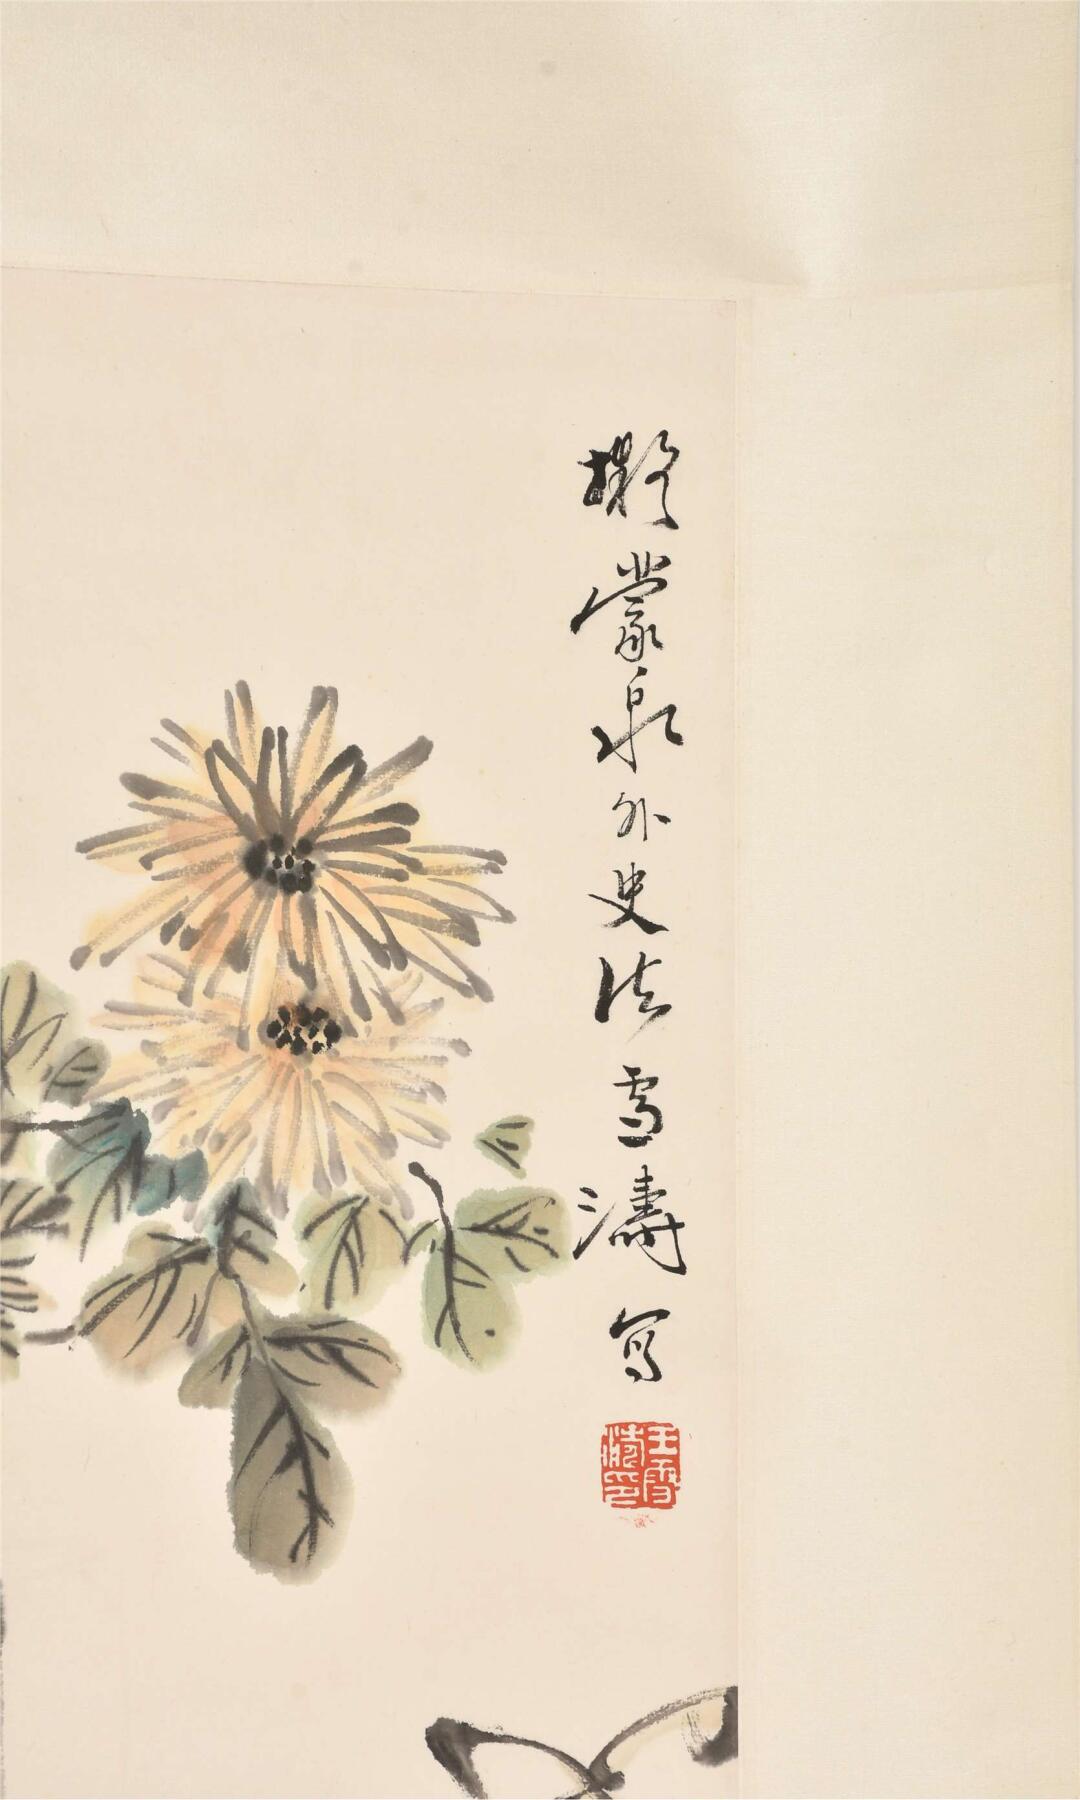 擬蒙泉外史法雪濤寫
王雪濤印